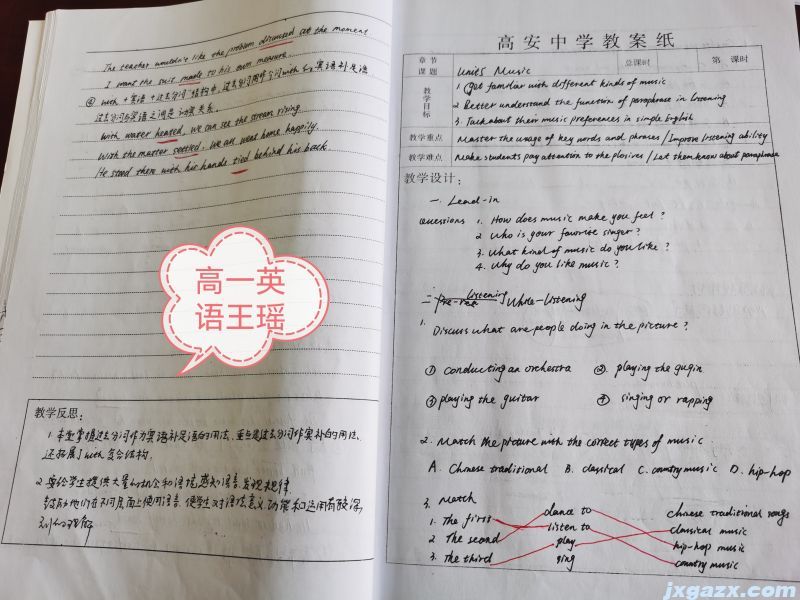 The teacher wouldn't like the problem discussed at the moment
I want the suit made to his own measure.
④ with + 宾语 + 过去分词"结构中,过去分词用作介词with 的宾语补足语
过去分词与宾语之间是动宾关系.
With water heated, we can see the steam rising
With the matter settled, We all went home happily.
He stood there with his hands tied behind his back
高一英
语王瑶
教学反思:
1. 本堂掌握过去分词作为宾语补足语的用法、重点是过去分词作宾补的用法,
还拓展了with复合结构.
2. 要给学生提供大量的机会和语境,感知语言,发现规律.
鼓励他们在不同层面上使用语言. 使学生对语法意义功能和运用有较深
刻的理解
高安中学教案纸
章节
课题
Unit5 Music
总课时
第 课时
教学目标
1 Get familiar with different kinds of music
2 Better understand the function of paraphrase in listening
3. Talk about their music preferences in simple English
教学重点 Master the usage of key words and phrases / Improve listening ability
教学难点 Make students pay attention to the plosives / Let them know about paraphrase
教学设计:
一. Lead-in
Questions 1. How does music make you feel ?
2 Who is your favorite singer?
3. What kind of music do you like ?
4. Why do you like music ?
二 listening While-listening
1. Discuss what are people doing in the picture ?
① conducting an orchestra ② playing the guqin
③ playing the guitar ④ singing or rapping
2. Match the picture with the correct types of music
A. Chinese traditional B. classical C. country music D. hip-hop
3. Match
1. The first dance to Chinese traditional songs
2 The second listen to classical music
3. The third play hip-hop music
sing country music
jxgazx.com